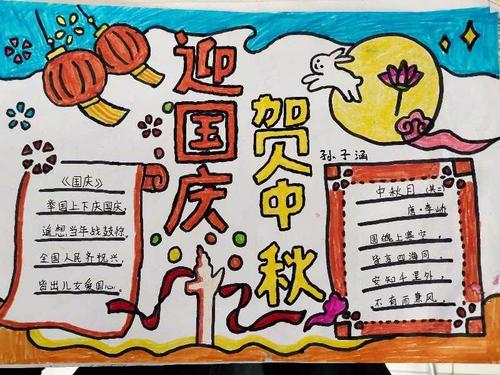 迎国庆
贺中秋
孙子涵
《国庆》
举国上下庆国庆,
遥想当年战鼓惊.
全国人民齐祝兴,
皆出儿女爱国心.
中秋月(其二)
唐·李峤
圆魄上寒空
皆言四海同.
安知千里外,
不有雨兼风.